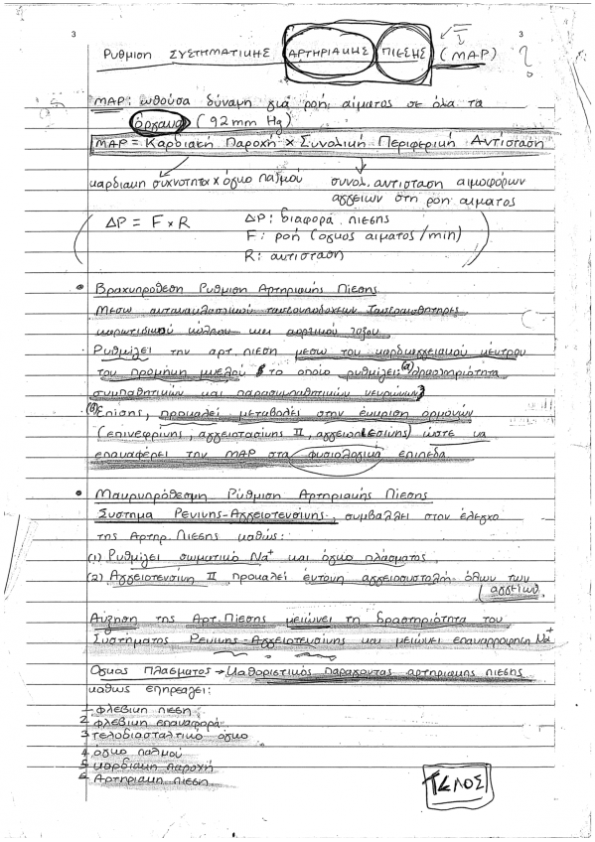 3
3
Ρυθμιση ΣΥΣΤΗΜΑΤΙΚΗΣ ΑΡΤΗΡΙΑΚΗΣ ΠΙΕΣΗΣ (MAP) ?
MAP: ωθούσα δύναμη για ροή αίματος σε όλα τα
όργανα (92mm Hg)
MAP = Καρδιακή Παροχή × Συνολική Περιφερική Αντίσταση
καρδιακη συχνοτητα × όγκο παλμού
συνολ. αντισταση αιμοφόρων
αγγείων στη ροη αιματος
ΔP = F × R
ΔP: διαφορά πιεσης
F: ροή (ογκος αιματος / min)
R: αντισταση
• Βραχυπρόθεση Ρυθμιση Αρτηριακής Πίεσης
Μεσω αντανακλαστικού τασεουποδοχεων
καρωτιδικού κόλπου και αορτικού τόξου.
Ρυθμίζει την αρτ. πιεση μεσω του καρδιαγγειακού κέντρου
του προμήκη μυελού το οποίο ρυθμίζει: (α) δραστηριότητα
συμπαθητικών και παρασυμπαθητικών νευρώνων
(β) Επίσης, προκαλεί μεταβολές στην έκκριση ορμονών
(επινεφρίνης, αγγειοτασίνης ΙΙ, αγγειοπιεσίνης) ώστε να
επαναφέρει την MAP στα φυσιολογικά επιπεδα.
• Μακρυπρόθεσμη Ρύθμιση Αρτηριακής Πίεσης
Σύστημα Ρενινης-Αγγειοτενσινης, συμβαλλει στον έλεγχο
της Αρτηρ. Πίεσης καθώς:
(1) Ρυθμίζει σωματικό Na+ και όγκο πλάσματος,
(2) Αγγειοτενσίνη ΙΙ προκαλεί έντονη αγγειοσυστολή όλων των
αγγείων.
Αύξηση της Αρτ. Πίεσης μειώνει τη δραστηριότητα του
Συστήματος Ρενινης-Αγγειοτενσίνης και μειώνει επαναρροφηση Na+
Όγκος Πλασματος → Καθοριστικός παράγοντας αρτηριακης πιεσης
καθως επηρεαζει:
1 φλεβικη πιεση
2 φλεβικη επαναφορά
3 τελοδιασταλτικό όγκο
4 όγκο παλμού
5 καρδιακη παροχή
6 Αρτηριακη πιεση.
ΤΕΛΟΣ